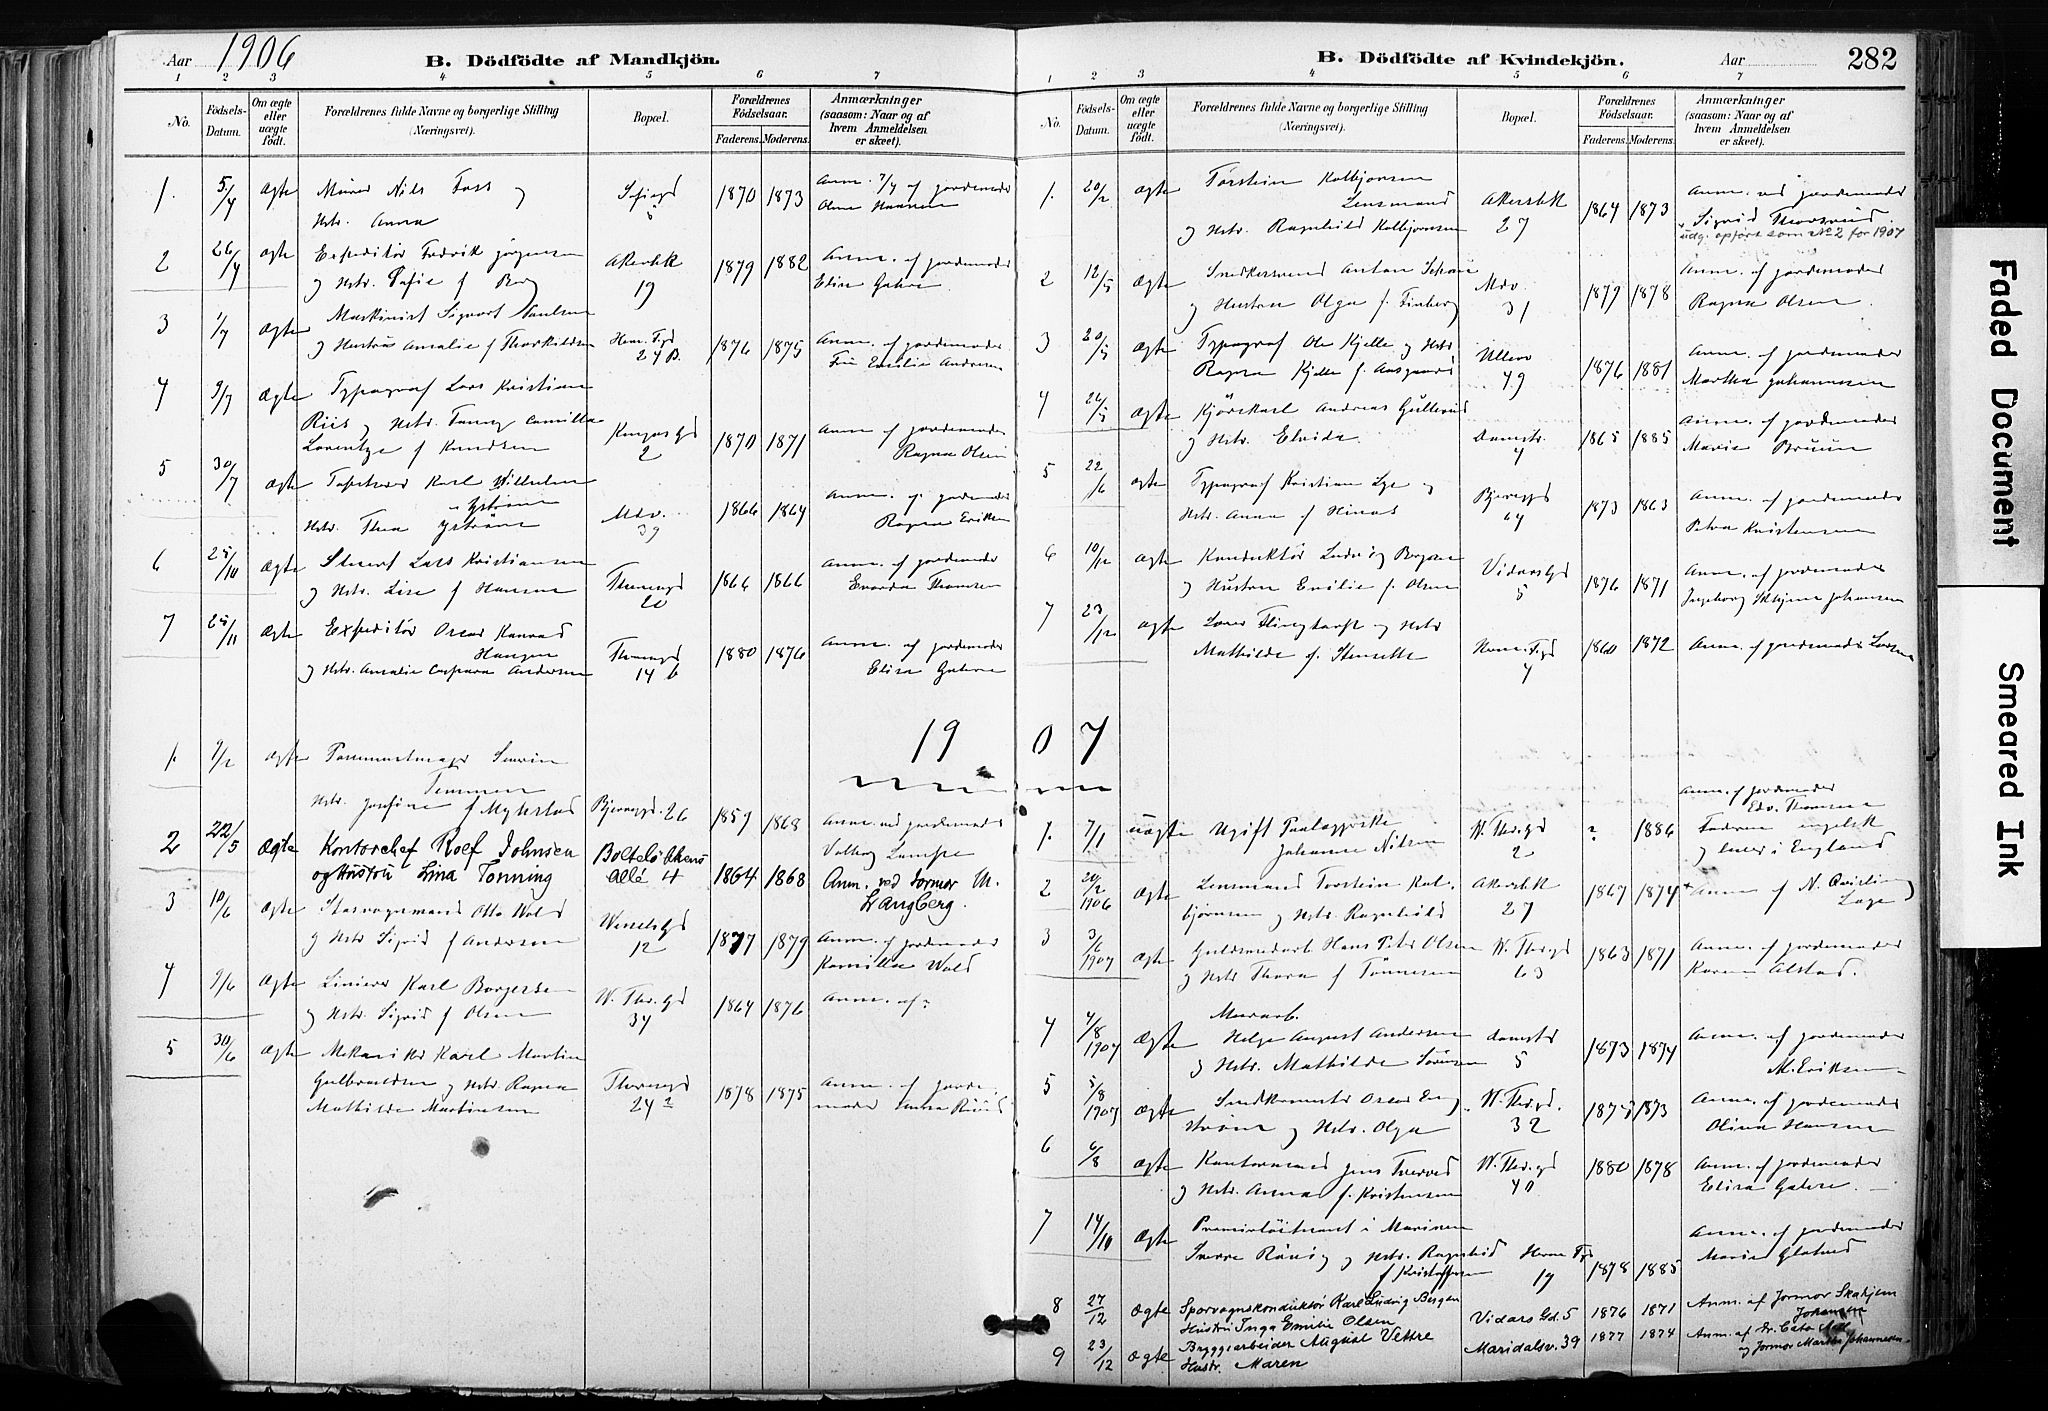 Aar 1906
B. Dödfödte af Mandkjön.
1 2 3 4 5 6 7
No.
Födsels-Datum.
Om ægte eller uægte født.
Forældrenes fulde Navne og borgerlige Stilling (Næringsvei).
Bopæl.
Forældrenes Födselsaar.
Faderens. Moderens.
Anmærkninger (saasom: Naar og af hvem Anmeldelsen er skeet).
1. 5/4 ægte Murer Nils Foss og Sofiegd 1870 1873 Anm. 7/4 af jordemoder
Hstr. Anna 5
2 26/4 ægte Expeditör Fredrik Jörgensen Akersbk 1879 1882 Anm. af jordemoder
og Hstr. Sofie f. Berg 19 Elise
3 1/7 ægte Maskinist Sigvart Paulsen
og Hustru Amalie f Thorkildsen 24 B 1876 1875 Anm. af jordemoder
Fru Emilie Andersen
4 9/7 ægte Typograf Lars Kristian
Riis og Hstr. Fanny Camilla
Lorentze f Knudsen 2 1870 1871 Anm af jordemoder
Ragna Olsen
5 30/7 ægte Tapetserer Karl Wilhelm
Yström
Hstr. Thea Yström Mdv. 39 1866 1864 Anm. af jordemoder
Ragna Eriksen
6 25/10 ægte Stuert Lars Kristiansen
og Hstr. Lise f Hansen Thereses gd 20 1866 1866 Anm. af jordemoder
Thomsen
7 25/11 ægte Expeditör Oscar Konrad
Haugen
og Hstr. Amalie Caspara Andersen 14 b 1880 1876 Anm. af jordemoder
Elise
1907
1. 9/2 ægte
Hstr. Josefine f Myhrstad Bjerregd. 26 1859 1868 Anm. ved jordemoder
Valborg
2 22/5 ægte Kontorchef Rolf Johnsen Bolteløkkens
og Hustru Lina Tonning Allé 4 1864 1868 Anm. ved Jormor M.
Langberg.
3 10/6 ægte Otto Wold Wesselsgd
og Hstr Sigrid f Andersen 12 1877 1879 Anm. af jordemoder
Kamilla Wold
4 9/6 ægte Linierer Karl Borgersen W. Thr. gd 1864 1876 Anm. af ?
og Hstr. Sigrid f Olsen 34
5 30/6 ægte Mekaniker Karl Martin
Gulbrandsen og Hstr. Ragna Theresegd 1878 1875 Anm. af jorde-
Mathilde Martinsen 24 moder Ruud
B. Dödfödte af Kvindekjön.
Aar
282
1 2 3 4 5 6 7
No.
Födsels-Datum.
Om ægte eller uægte født.
Forældrenes fulde Navne og borgerlige Stilling (Næringsvei).
Bopæl.
Forældrenes Födselsaar.
Faderens. Moderens.
Anmærkninger (saasom: Naar og af hvem Anmeldelsen er skeet).
1. 20/2 ægte Torstein Kolbjørnsen
Lensmand Akersbk 1864 1873 Anm. ved jordemoder
og Hstr. Ragnhild Kolbjørnsen 27 Sigrid
udg. opført som No 2 for 1907
2 12/5 ægte Snedkersvend Anton Mdv. 1879 1878 Anm. af jordemoder
og Hustru Olga f. 31 Ragna Olsen
3 20/5 ægte Typograf Ole Kjelle og Hstr Ullevv 1876 1881 Anm. af jordemoder
Ragna Kjelle f. Aasgaard 49 Martha Johannesen
4 26/5 ægte Kjörekarl Andreas Gullerud
og Hstr. Elvida. Damstr. 4 1865 1885 Anm. af jordemoder
Marie Bruun
5 22/6 ægte Typograf Kristian og Bjerregd 1873 1863 Anm. af jordemoder
Hstr. Anna f 64 Petra Kristensen
6 10/12 ægte Konduktör Ludvig Bergsen Vidarsgd 1876 1871 Anm. af jordemoder
og Hustru Emilie f. Olsen 5 Ingeborg Johansen
7 23/12 ægte og Hstr
Mathilde f. 4 1860 1872 Anm. af jordemoder Larsen
1. 7/1 uægte Ugift W. Thr. gd ? 1886 Anm. af jordemoder
Johanne Nilsen 2 Edv. Thomsen
Faderen engelsk
og lever i England
2 20/2 1906 ægte Lensmand Torstein Kol- Akersbk 1867 1874 Anm af N. Quisling
bjørnsen og Hstr. Ragnhild 27 Læge
3 3/6 1907 ægte Guldsmedarb. Hans Peter Olsen W. Thr. gd 1863 1871 Anm. af jordemoder
og Hstr Thora f Tönnesen 63 Karen Alstad.
4 4/8 1907 ægte Murarb.
Helge August Andersen Damstr 1873 1874 Anm. af jordemoder
og Hstr. Mathilde Sörensen 5 M. Eriksen
5 5/8 1907 ægte Snedkermester Oscar Eng- W. Thr. gd. 1873 Anm. af jordemoder
ström og Hstr. Olga 32 Olina Hansen
6 6/8 ægte Kontormand Jens Tverved W. Thr. gd 1880 1878 Anm. af jordemoder
og Hstr. Anna f. Kristensen 40 Elisa
7 14/10 ægte Premierlöitnant i Marinen
Sverre og Hstr. Ragnhild 1878 1885 Anm. af jordemoder
f Kristoffersen 19 Marie
8 27/12 ægte Sporvognskonduktör Karl Ludvig Bergan Vidars Gd. 5 1876 1871 Anm. af Jormor Skahjem
Hustru Inga Emilie Olsen Johansen
9 23/12 ægte Bryggiarbeider August Vettre Maridalsv. 39 1877 1874 Anm. af Dr. Cato Aall
Hustr. Maren og Jormor Martha Johannesen
Faded Document
Smeared Ink